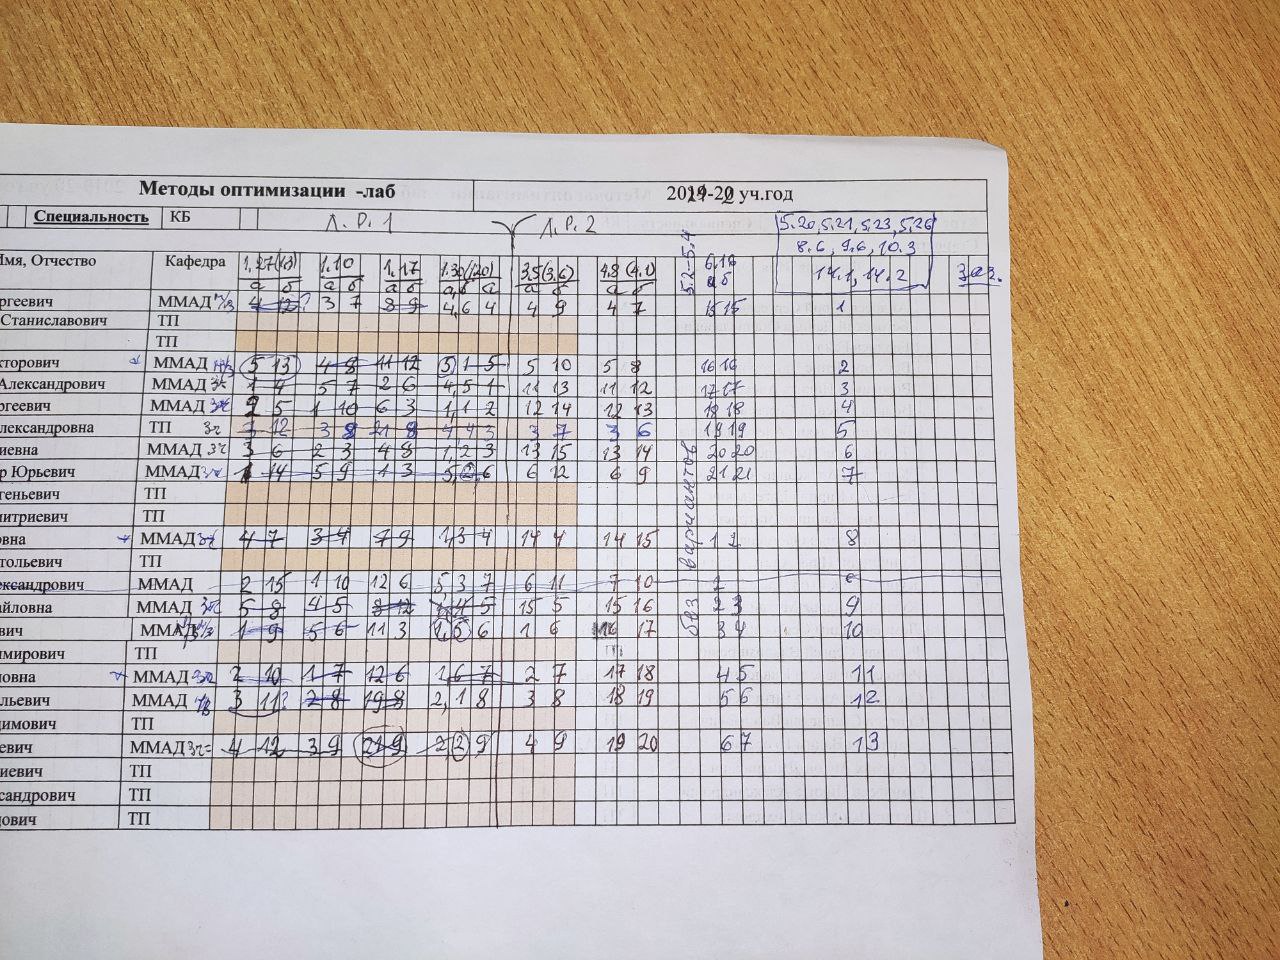 Методы оптимизации -лаб 2019-20 уч.год
Специальность КБ Л.Р.1 Л.Р.2 5.20, 5.21, 5.23, 5.26
8.6, 9.6, 10.3
Имя, Отчество Кафедра 1.10 1.17 3.5(3.6) 4.8(4.1) 5.2-5.4 14.1, 14.2
а б а б а б а б а б а б
ргеевич ММАД 4 12 3 7 8 9 4,6 4 4 9 4 7 15 15 1
Станиславович ТП
ТП
кторович ММАД 5 13 4 8 11 12 5 1 5 5 10 5 8 16 16 2
Александрович ММАД 1 4 5 7 2 6 4,5 1 11 13 11 12 17 17 3
ргеевич ММАД 2 5 1 10 6 3 1,1 2 12 14 12 13 18 18 4
лександровна ТП 3 12 3 8 21 8 4 4 3 3 7 3 6 19 19 5
иевна ММАД 3 6 2 3 4 8 1,2 3 13 15 13 14 20 20 6
р Юрьевич ММАД 1 14 5 9 1 3 5,2 6 6 12 6 9 21 21 7
геньевич ТП
итриевич ТП
овна ММАД 4 7 3 4 7 9 1,3 4 14 4 14 15 1 2 8
тольевич ТП
ександрович ММАД 2 15 1 10 12 6 5,3 7 6 11 7 10
айловна ММАД 5 8 4 5 8 12 1,4 5 15 5 15 16 2 3 9
вич ММАД 1 9 5 6 11 3 1,5 6 1 6 16 17 3 4 10
имирович ТП
ловна ММАД 2 10 1 7 12 6 1 6 7 2 7 17 18 4 5 11
льевич ММАД 3 11 2 8 19 8 2,1 8 3 8 18 19 5 6 12
димович ТП
евич ММАД 4 12 3 9 21 9 2,2 9 4 9 19 20 6 7 13
иевич ТП
сандрович ТП
дович ТП
без вариантов